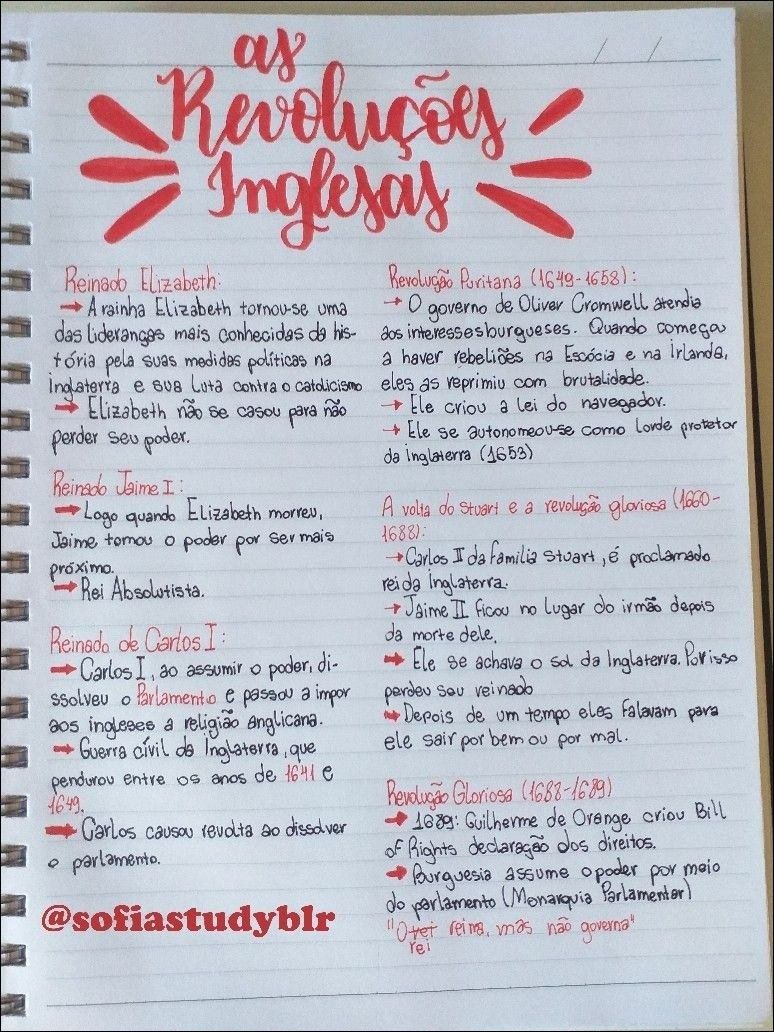 as
Revoluções
Inglesas
Reinado Elizabeth:
→ A rainha Elizabeth tornou-se uma
das lideranças mais conhecidas da his-
tória pela suas medidas políticas na
inglaterra e sua luta contra o catolicismo
→ Elizabeth não se casou para não
perder seu poder.
Reinado Jaime I:
→ Logo quando Elizabeth morreu,
Jaime tomou o poder por ser mais
próximo.
→ Rei Absolutista.
Reinado de Carlos I:
→ Carlos I, ao assumir o poder, di-
ssolveu o Parlamento e passou a impor
aos ingleses a religião anglicana.
→ Guerra cívil da Inglaterra, que
pendurou entre os anos de 1641 e
1649.
→ Carlos causou revolta ao dissolver
o parlamento.
@sofiastudyblr
Revolução Puritana (1649-1658):
→ O governo de Oliver Cromwell atendia
aos interesses burgueses. Quando começou
a haver rebeliões na Escócia e na irlanda,
eles as reprimiu com brutalidade.
→ Ele criou a lei do navegador.
→ Ele se autonomeou-se como lorde protetor
da inglaterra (1653)
A volta do stuart e a revolução gloriosa (1660-
1688):
→ Carlos II da familia stuart, é proclamado
rei da inglaterra.
→ Jaime II ficou no lugar do irmão depois
da morte dele.
→ Ele se achava o sol da Inglaterra. Por isso
perdeu seu reinado
→ Depois de um tempo eles falavam para
ele sair por bem ou por mal.
Revolução Gloriosa (1688-1689)
→ 1689: Guilherme de Orange criou Bill
of Rights declaração dos direitos.
→ Burguesia assume o poder por meio
do parlamento (Monarquia Parlamentar)
"O rei reina, mas não governa"
rei